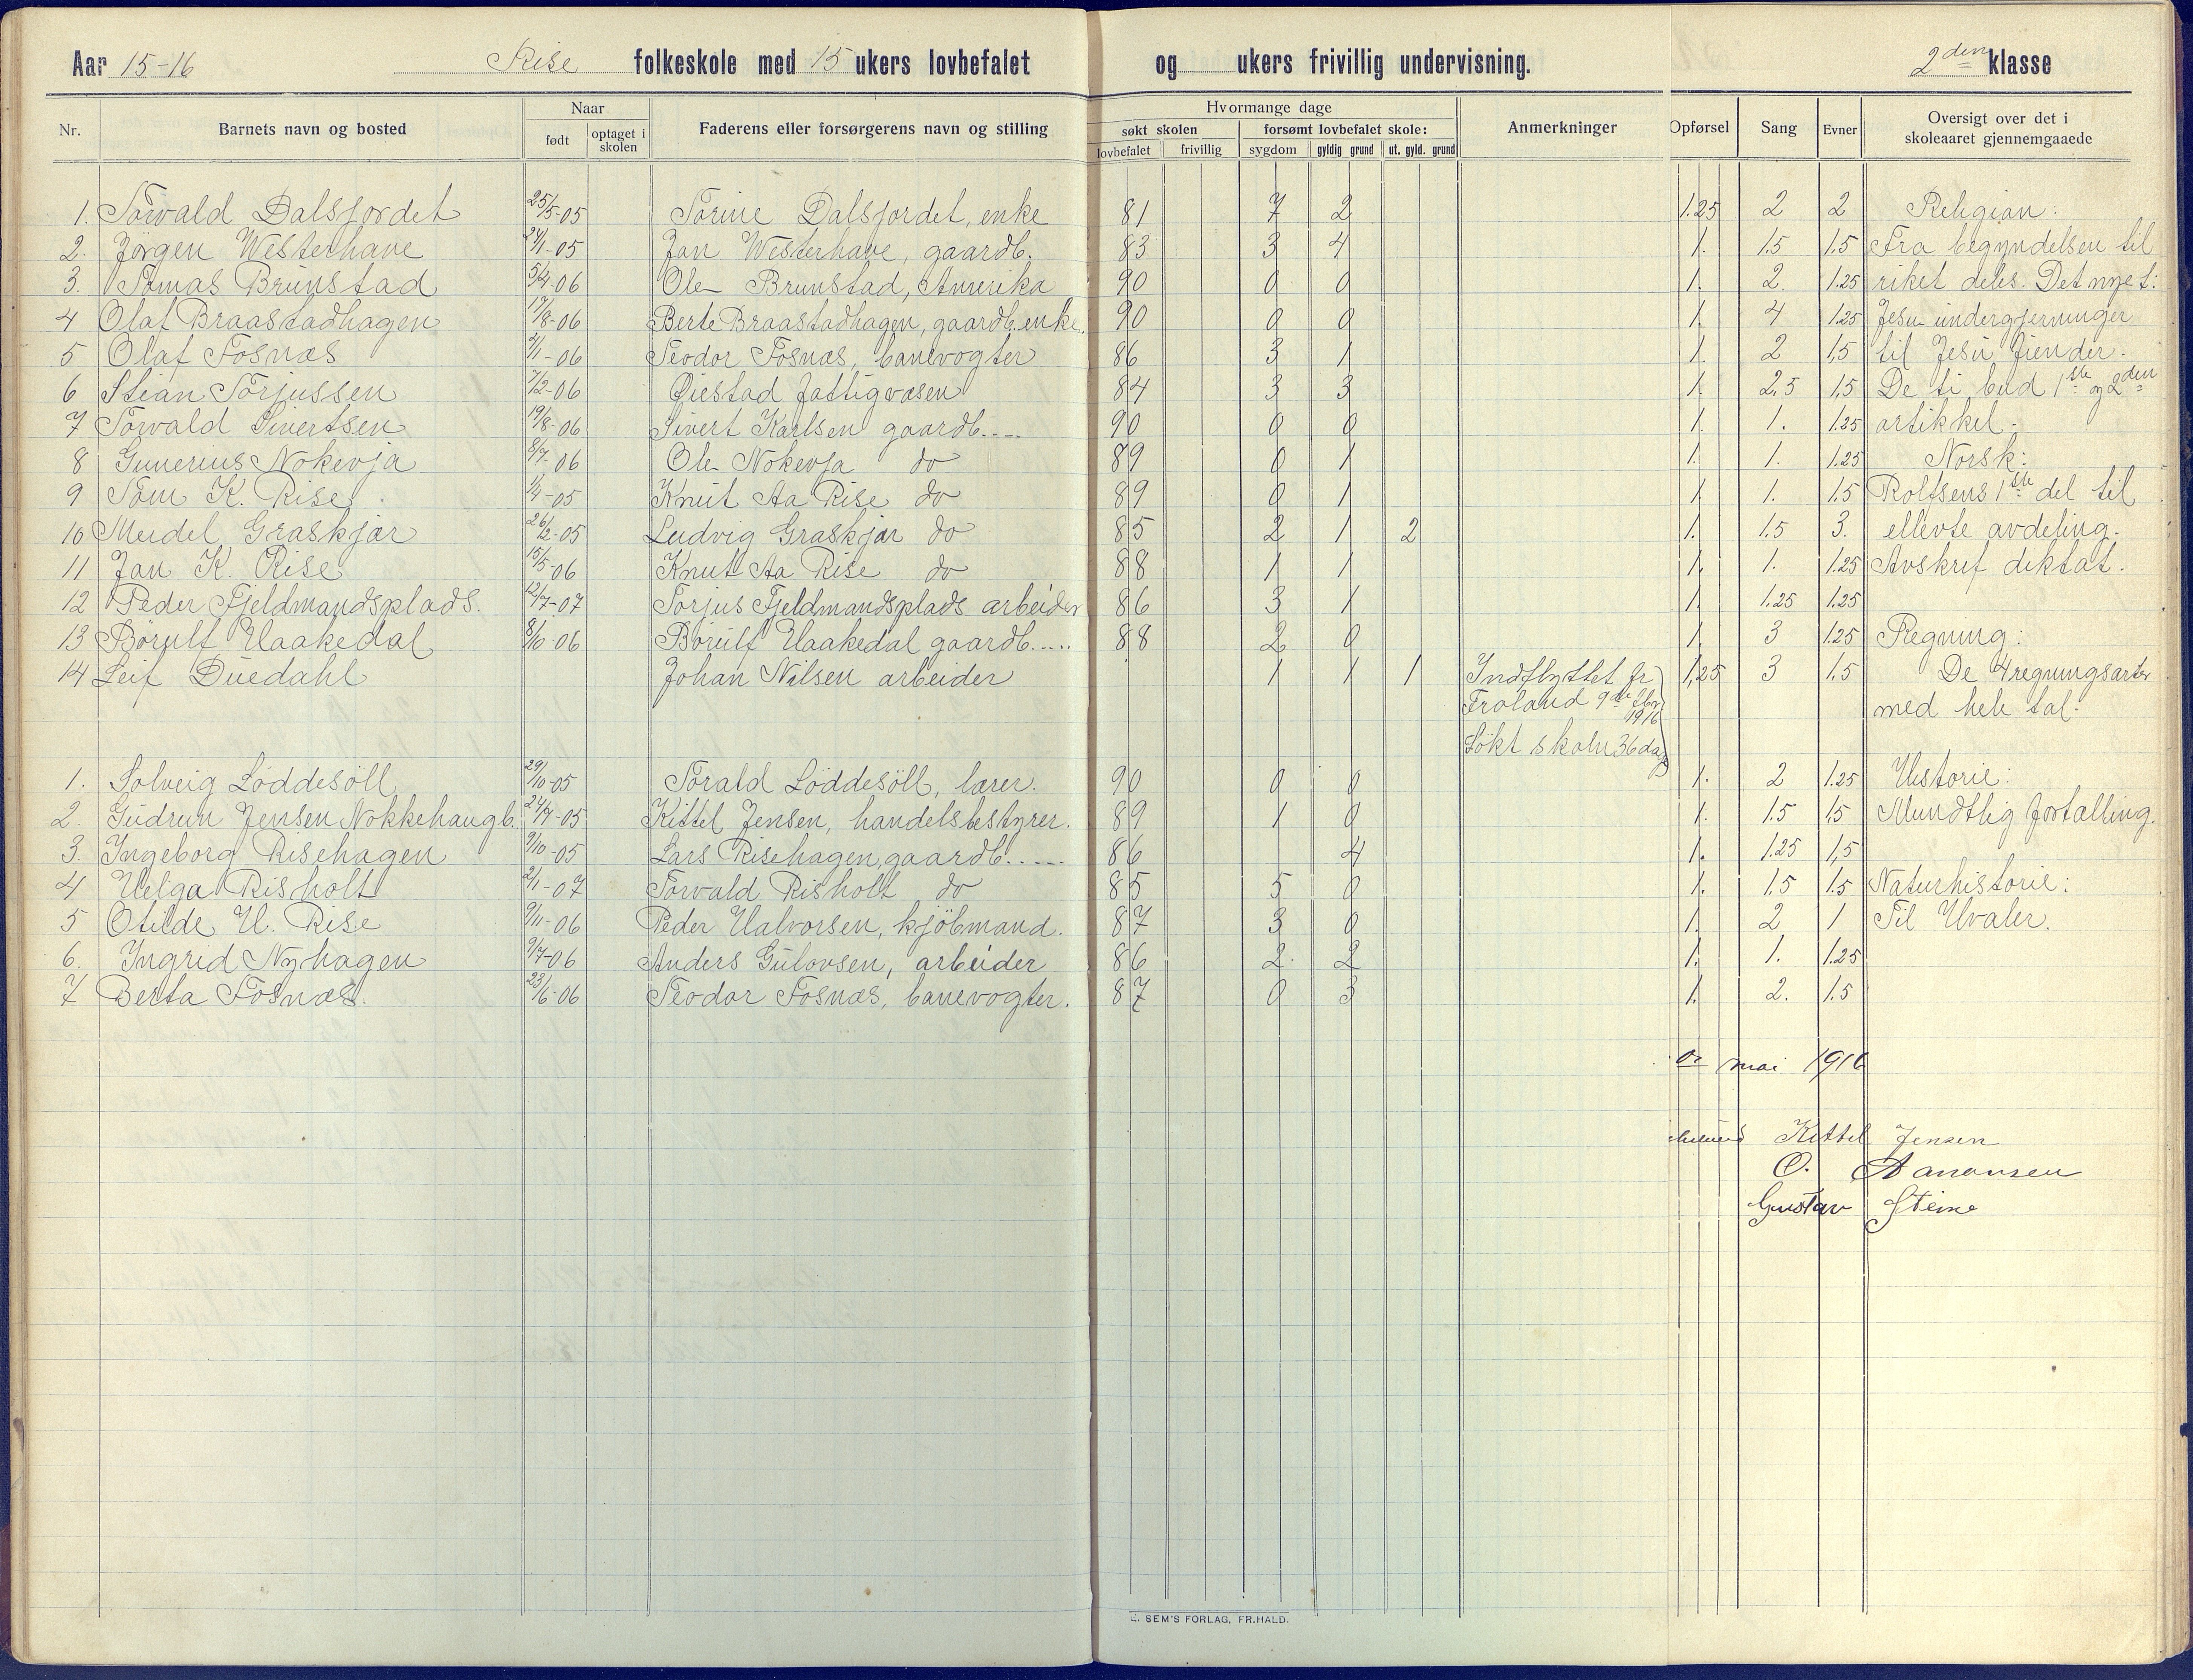 Aar 15-16 Rise folkeskole med 15 ukers lovbefalet og ukers frivillig undervisning. 2den klasse
Nr. Barnets navn og bosted Naar født optaget i skolen Faderens eller forsørgerens navn og stilling Hvormange dage søkt skolen lovbefalet frivillig forsømt lovbefalet skole: sygdom gyldig grund ut. gyld. grund Anmerkninger Opførsel Sang Evner Oversigt over det i skoleaaret gjennemgaaede
1. Torvald Dalsfordet 25/5-05 Torine Dalsfordet, enke 81 7 2 1.25 2 2 Religion:
2. Jørgen Westerhave 24/1-05 Jan Westerhave, gaardb. 83 3 4 1. 1.5 1.5 Fra begyndelsen til
3. Tomas Brunstad 5/4-06 Ole Brunstad, Amerika 90 0 0 1. 2. 1.25 riket deles. Det nye t:
4 Olaf Braastadhagen 17/8-06 Berte Braastadhagen, gaardb. enke. 90 0 0 1. 4 1.25 Jesu undergjerninger
5 Olaf Fosnæs /1-06 Teodor Fosnæs, banevogter 86 3 1 1. 2 1,5 til Jesu fiender.
6 Stian Torjussen 7/2-06 Øiestad fattigvæsen 84 3 3 1. 2,5 1,5 De ti bud 1ste og 2den
7 Torvald Sivertsen 19/8-06 Sivert Karlsen gaardb.... 90 0 0 1. 1. 1.25 artikkel.
8 Gunerius Nokevja 8/7-06 Ole Nokevja do 89 0 1 1. 1. 1.25 Norsk:
9 Tom K. Rise. 1/4-05 Knut Aa Rise do 89 0 1 1 1. 1.5 Rolfsens 1ste del til
10 Meidel Graskjær 26/2-05 Ludvig Graskjær do 85 2 1 2 1. 1.5 3. ellevte avdeling.
11 Jan K. Rise 15/5-06 Knut Aa Rise do 88 1 1 1. 1. 1.25 Avskrift diktat.
12 Peder Fjeldmandsplads. 12/7-07 Torjus Fjeldmandsplads arbeider 86 3 1 1. 1.25 1.25
13 Børulf Haakedal 8/10-06 Børulf Haakedal gaardb..... 88 2 0 1. 3 1.25 Regning:
14 Leif Duedahl Johan Nilsen arbeider 1 1 1 Indflyttet fr 1,25 3 1,5 De 4 regningsarter
Froland 9de febr 1916 med hele tal.
Søkt skolen 36 dag
1. Solveig Løddesöll 29/10-05 Torald Løddesöll, lærer. 90 0 0 1. 2 1.25 Historie:
2. Gudrun Jensen Nokkehaugb. 24/7-05 Kittel Jensen, handelsbestyrer. 89 1 0 1. 1.5 1,5 Mundtlig fortælling.
3. Ingeborg Risehagen 9/10-05 Lars Risehagen, gaardb..... 86 4 1. 1.25 1,5
4 Helga Risholt 2/1-07 Torvald Risholt do 85 5 0 1. 1.5 1.5 Naturhistorie:
5 Otilde H. Rise 9/11-06 Peder Halvorsen, kjöbmand. 87 3 0 1. 2 1 Til Hvaler.
6. Ingrid Nyhagen 9/7-06 Anders Gulovsen, arbeider 86 2. 2 1. 1. 1.25
7 Berta Fosnæs. 23/6-06 Teodor Fosnæs, banevogter. 87 0 3 1. 2. 1.5
mai 1916
Kittel Jensen
O. Aanonsen
Gustav Steine
E. SEM'S FORLAG, FR.HALD.